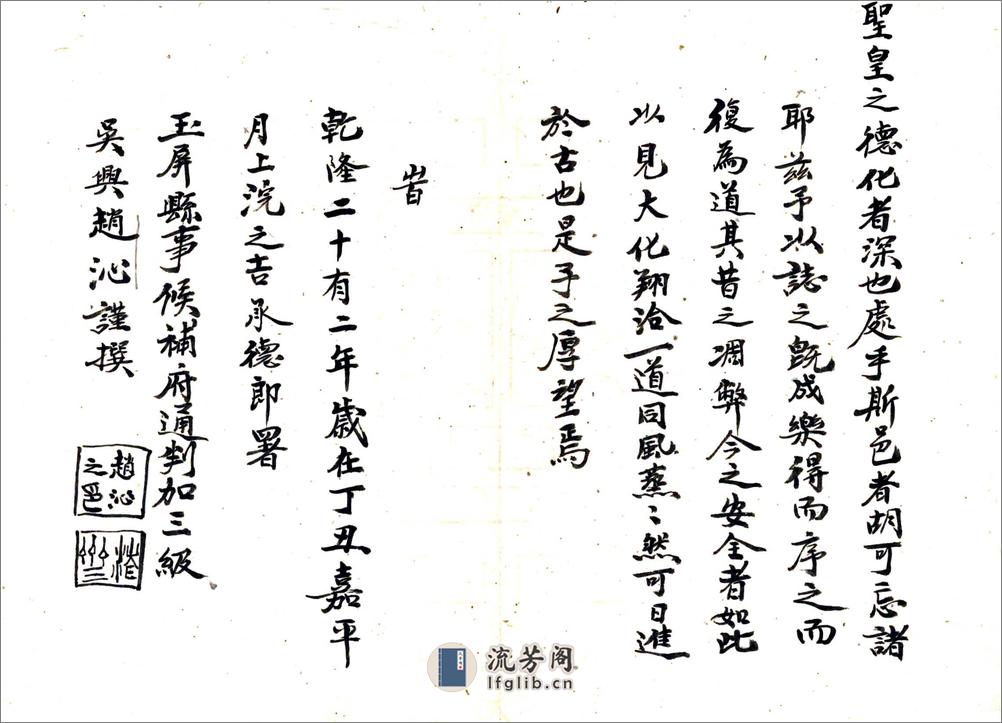 聖皇之德化者深也處乎斯邑者胡可忘諸
耶茲予以誌之既成樂得而序之而
復為道其昔之凋弊今之安全者如此
以見大化翔洽一道同風蒸〻然可日進
於古也是予之厚望焉
旹
乾隆二十有二年歲在丁丑嘉平
月上浣之吉承德郎署
玉屏縣事候補府通判加三級
吳興趙沁謹撰
趙沁
之邑
流芳阁
lfglib.cn